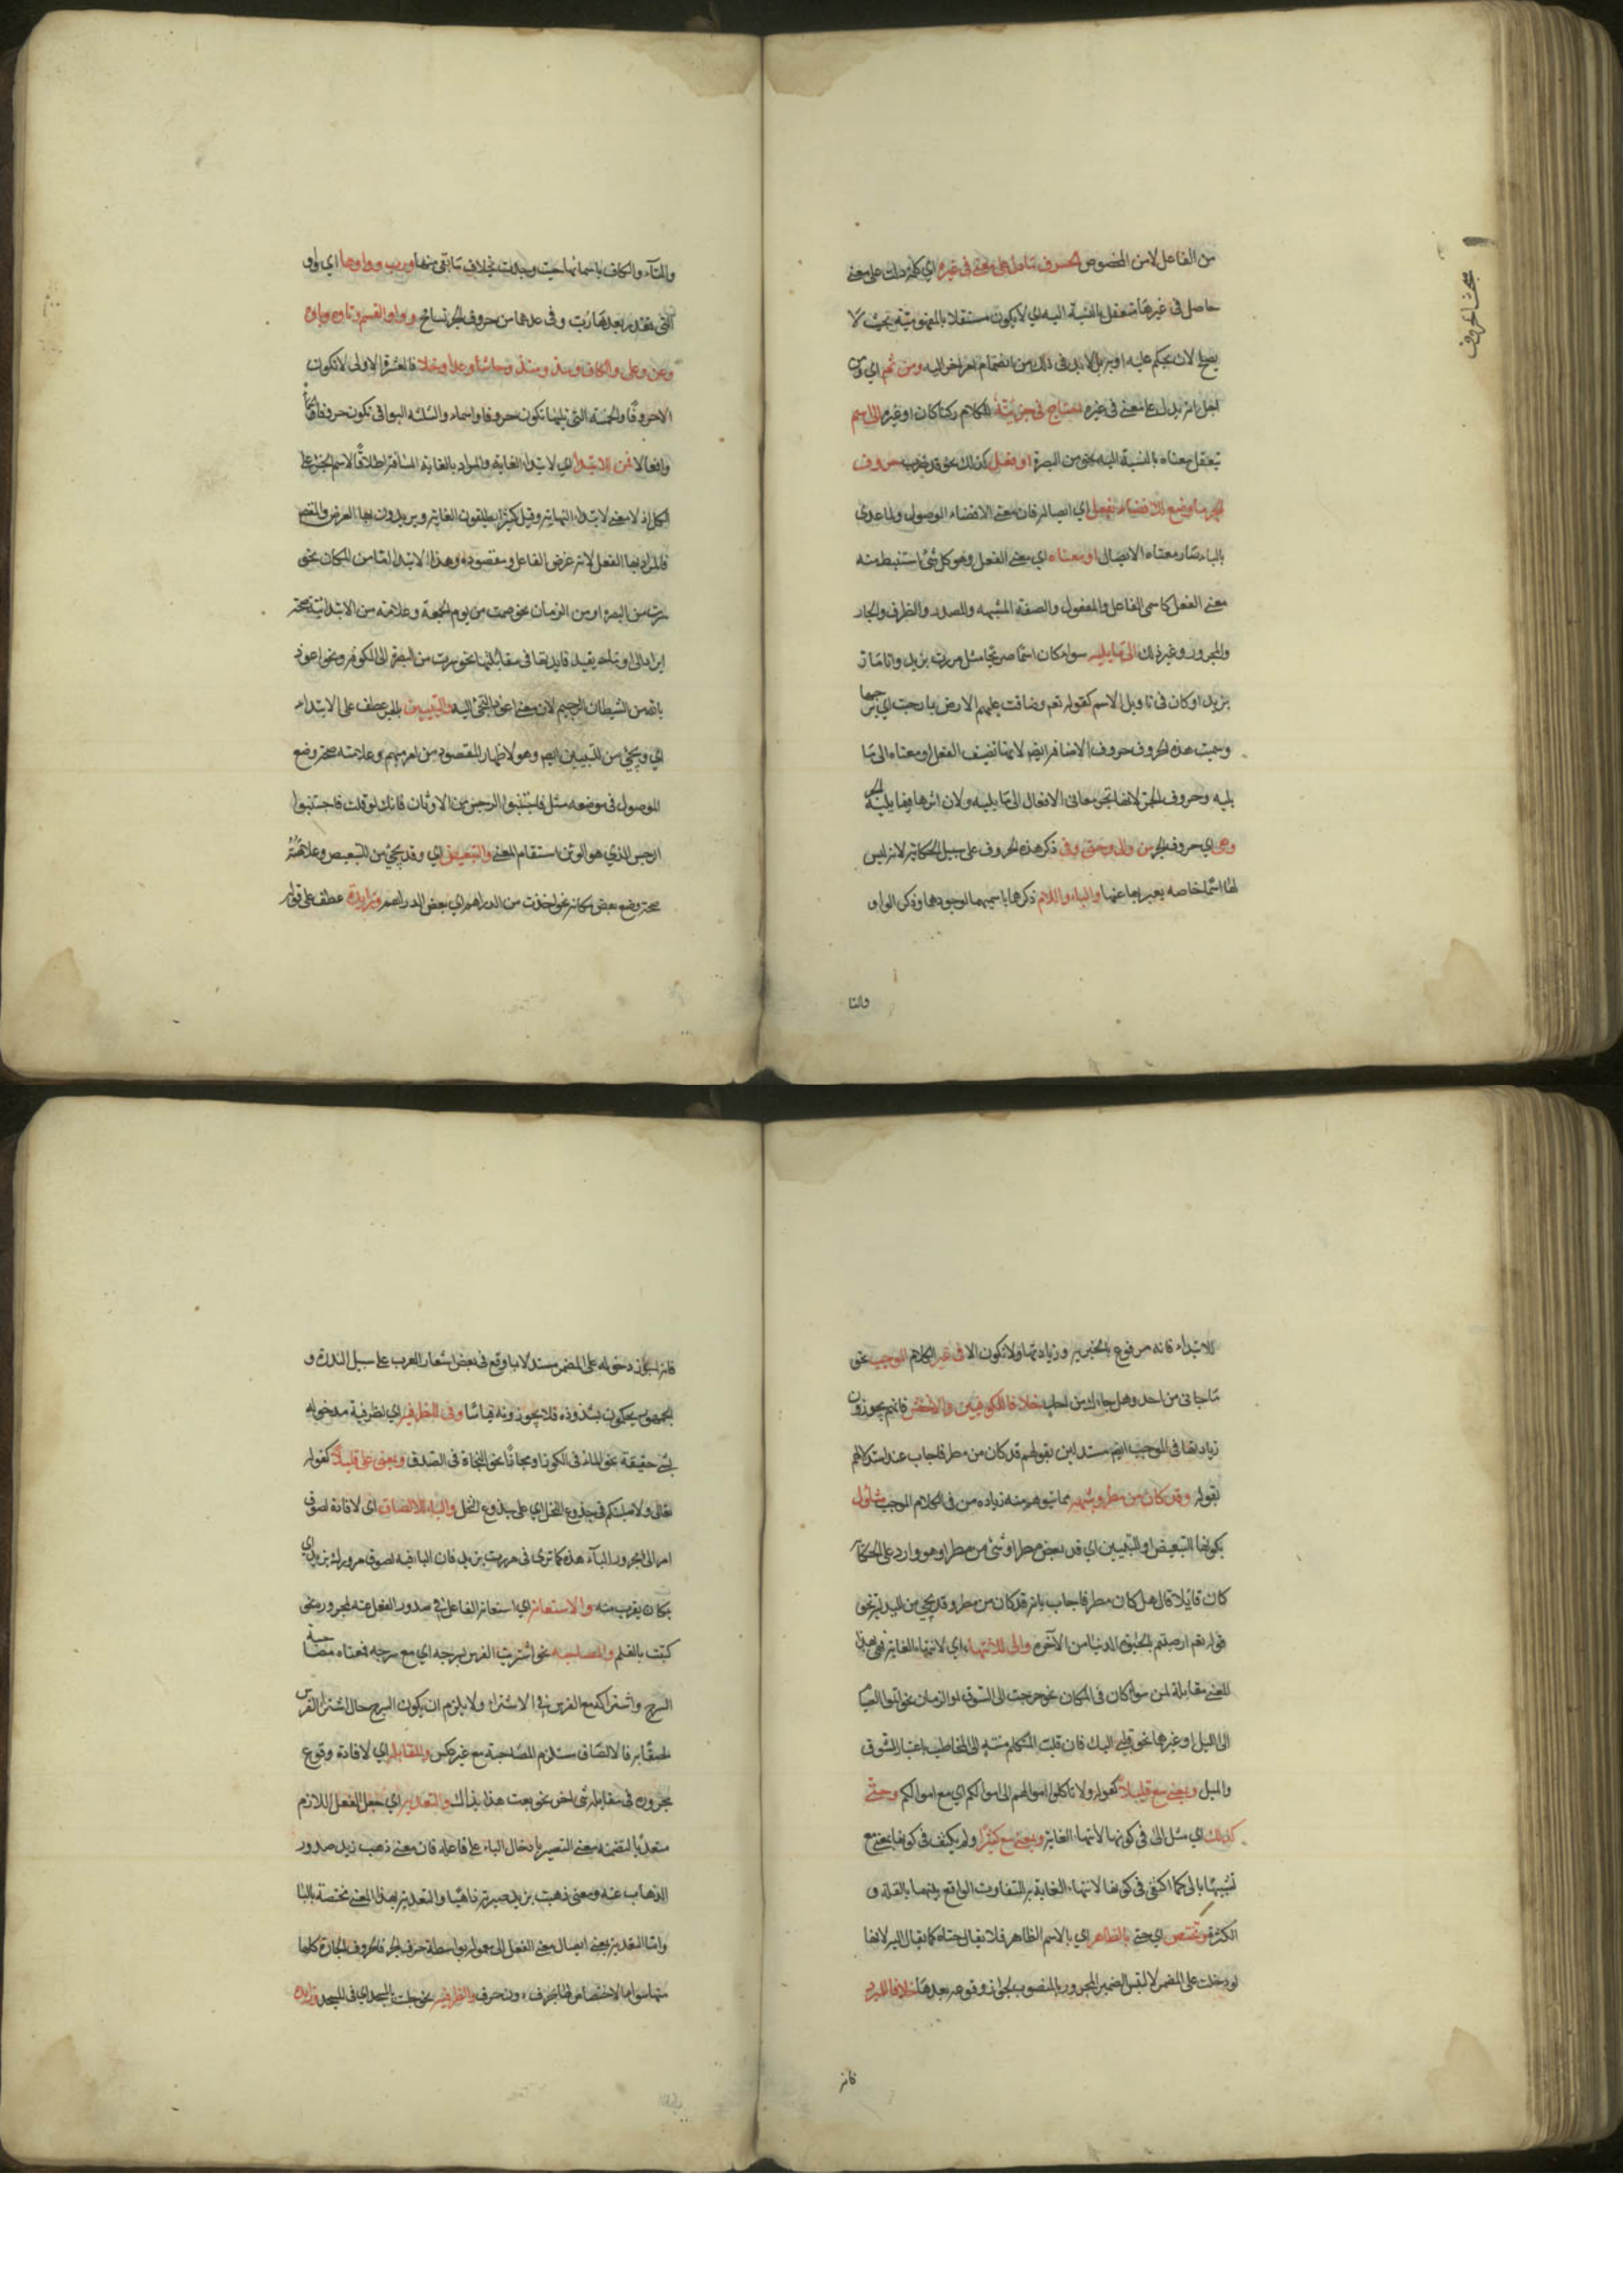 من الفاعل لا من المخصوص الحرف ما دل على معنى في غيره اي كلمة دلت على معنى
حاصل في غيرها متعقل بالنسبة اليه اي لا يكون مستقلا بالمفهومية بحيث لا
يصلح لان يحكم عليه او به بل لا بد في ذلك من انضمام امر اخر اليه ومن ثم اي ومن
اجل انه يدل على معنى في غيره احتاج في جزئيته للكلام ركنا كان او غيره الى اسم
يتعقل معناه بالنسبة اليه نحو من البصرة او فعل كذلك نحو قد ضرب حروف
الجر ما وضع للافضاء بفعل اي ايصاله فان معنى الافضاء الوصول ولما عدى
بالباء صار معناه الايصال او معناه اي معنى الفعل وهو كل شئ استنبط منه
معنى الفعل كاسمي الفاعل والمفعول والصفة المشبهه والمصدر والظرف والجار
والمجرور وغير ذلك الى ما يليه سواء كان اسما صريحا مثل مررت بزيد وانا مار
بزيد او كان في تاويل الاسم كقوله تعم وضاقت عليهم الارض بما رحبت اي برحبها
وسميت هذه الحروف حروف الاضافة ايضا لانها تضيف الفعل او معناه الى ما
يليه وحروف الجر لانها تجر معاني الافعال الى ما يليه ولان اثرها فيما يليه الجر
وهي اي حروف الجر من والى وحتى وفي ذكر هذه الحروف على سبيل الحكاية لانه ليس
لها اسما خاصه يعبر بها عنها والباء واللام ذكرها باسميهما لوجودهما وذكر الواو
والتا
بحث الحروف
والتاء والكاف باسمائها حيث وجدت بخلاف ما بقي منها ورب وواوها اي واو
التي تقدر بعدها رب وفي عدها من حروف الجر تسامح وواو القسم وتاوه وباوه
وعن وعلى والكاف ومذ ومنذ وحاشا وعدا وخلا فالعشرة الاولى لا تكون
الا حروفا والخمسة التي تليها تكون حروفا واسماء والثلثه البواقي تكون حروفا
وافعالا فمن للابتداء اي لابتداء الغاية والمراد بالغاية المسافة اطلاقا لاسم الجزء على
الكل اذ لا معنى لابتداء النهاية وقيل كثيرا يطلقون الغاية ويريدون بها الغرض والمقصد
فالمراد بها الفعل لانه غرض الفاعل ومقصوده وهذا الابتداء اما من المكان نحو
سرت من البصرة او من الزمان نحو صمت من يوم الجمعة وعلامة من الابتدائية صحة
ايراد الى او ما يفيد فايدتها في مقابلتها نحو سرت من البصرة الى الكوفة ونحو اعوذ
بالله من الشيطان الرجيم لان معنى اعوذ التجئ اليه والتبيين بالجر عطف على الابتداء
اي ويجئ من للتبيين ايضا وهو لاظهار المقصود من امر مبهم وعلامته صحة وضع
الموصول في موضعه مثل فاجتنبوا الرجس من الاوثان فانك لو قلت فاجتنبوا
الرجس الذي هو الوثن استقام المعنى والتبعيض اي وقد يجئ من للتبعيض وعلامته
صحة وضع بعض مكانه نحو اخذت من الدراهم اي بعض الدراهم وزايدة عطف على قوله
للابتداء فانه مرفوع بالخبرية وزيادتها ولا تكون الا في غير الكلام الموجب نحو
ما جاني من احد وهل جاءك من احد خلافا للكوفيين والاخفش فانهم يجوزون
زيادتها في الموجب ايضا مستدلين بقولهم قد كان من مطر فاجاب عند استدلالهم
بقوله وقد كان من مطر وشبهه مما يتوهم منه زياده من في الكلام الموجب متاول
بكونها للتبعيض او للتبيين اي قد بعض مطر او شئ من مطر او هو وارد على الحكاية
كان قائلا قال هل كان مطر فاجاب بانه قد كان من مطر وقد يجئ من للبدلية نحو
قوله تعم ارضيتم بالحيوة الدنيا من الآخرة والى للانتهاء اي لانتهاء الغاية فهي بهذا
المعنى مقابلة لمن سواء كان في المكان نحو خرجت الى السوق او الزمان نحو اتموا الصيام
الى الليل او غيرهما نحو قلبي اليك فان قلب المتكلم منته الى المخاطب باعتبار الشوق
والميل وبمعنى مع قليلا كقوله ولا تاكلوا اموالهم الى اموالكم اي مع اموالكم وحتى
كذلك اي مثل الى في كونها لانتهاء الغاية وبمعنى مع كثيرا ولم يكتف في كونها بمعنى مع
تشبيها بالى كما اكتفى في كونها لانتهاء الغاية به للتفاوت الواقع بينهما بالقلة و
الكثرة وتختص اي حتى بالظاهر اي بالاسم الظاهر فلا يقال حتاه كما يقال اليه لانها
لو دخلت على المضمر لالتبس الضمير المجرور بالمنصوب لجواز وقوعه بعدها خلافا للمبرد
فانه
فانه اجاز دخوله على المضمر مستدلا بما وقع في بعض اشعار العرب على سبيل الندرة و
الجمهور يحكمون بشذوذه فلا يجوزونه قياسا وفي للظرفية اي لظرفية مدخوله
لشئ حقيقة نحو الماء في الكوز او مجازا نحو النجاة في الصدق وبمعنى على قليلا كقوله
تعالى ولاصلبنكم في جذوع النخل اي على جذوع النخل والباء للالصاق اى لافادة لصوق
امر الى مجرور الباء هذه كما ترى في مررت بزيد فان الباء فيه لصوق مرورك بزيد اي
بمكان يقرب منه والاستعانة اي استعانة الفاعل في صدور الفعل عنه بمجروره نحو
كتبت بالقلم والمصاحبه نحو اشتريت الفرس بسرجه اي مع سرجه فمعناه مصاحبة
السرج واشتراكه مع الفرس في الاشتراء ولا يلزم ان يكون السرج حال اشتراء الفرس
ملصقا به فالالصاق مستلزم للمصاحبة من غير عكس والمقابلة اي لافادة وقوع
مجروره في مقابلة شئ اخر نحو بعت هذا بذاك والتعدية اي جعل الفعل اللازم
متعديا لتضمنه معنى التصيير بادخال الباء على فاعله فان معنى ذهب زيد صدور
الذهاب عنه ومعنى ذهبت بزيد صيرته ذاهبا والتعدية بهذا المعنى مختصة بالباء
واما التعدية بمعنى ايصال معنى الفعل الى معموله بواسطة حرف الجر فالحروف الجارة كلها
فيها سواء لا اختصاص لها بحرف دون حرف والظرفية نحو جلست بالمسجد اي في المسجد وزايدة